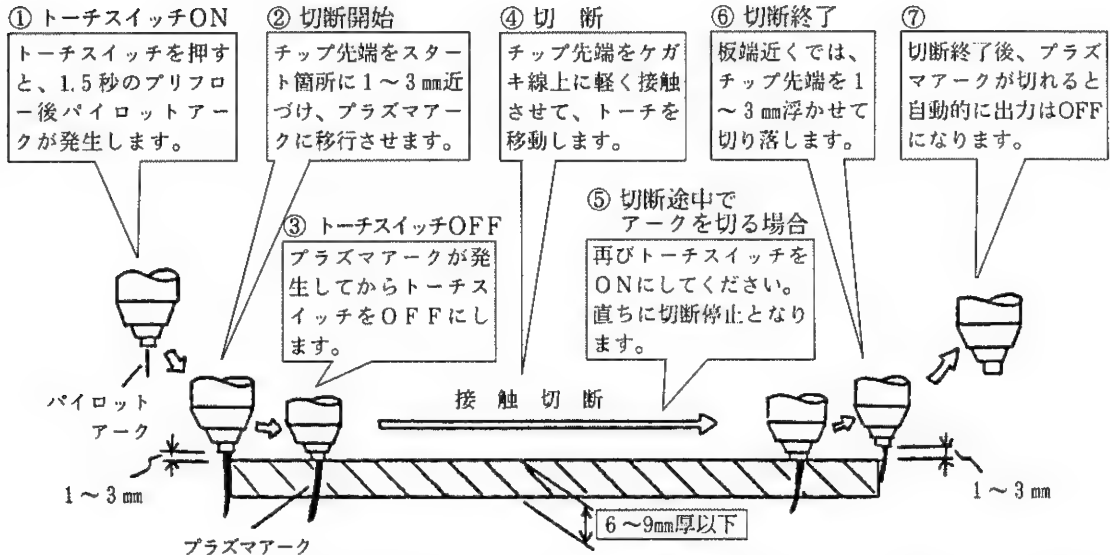 ① トーチスイッチON
トーチスイッチを押す
と、1.5秒のプリフロ
ー後パイロットアー
クが発生します。
② 切断開始
チップ先端をスター
ト箇所に1～3㎜近
づけ、プラズマアー
クに移行させます。
③ トーチスイッチOFF
プラズマアークが発
生してからトーチス
イッチをOFFにし
ます。
④ 切 断
チップ先端をケガ
キ線上に軽く接触
させて、トーチを
移動します。
⑤ 切断途中で
アークを切る場合
再びトーチスイッチを
ONにしてください。
直ちに切断停止となり
ます。
⑥ 切断終了
板端近くでは、
チップ先端を1
～3㎜浮かせて
切り落します。
⑦
切断終了後、プラズ
マアークが切れると
自動的に出力はOFF
になります。
パイロット
アーク
接 触 切 断
1～3㎜
1～3㎜
6～9㎜厚以下
プラズマアーク